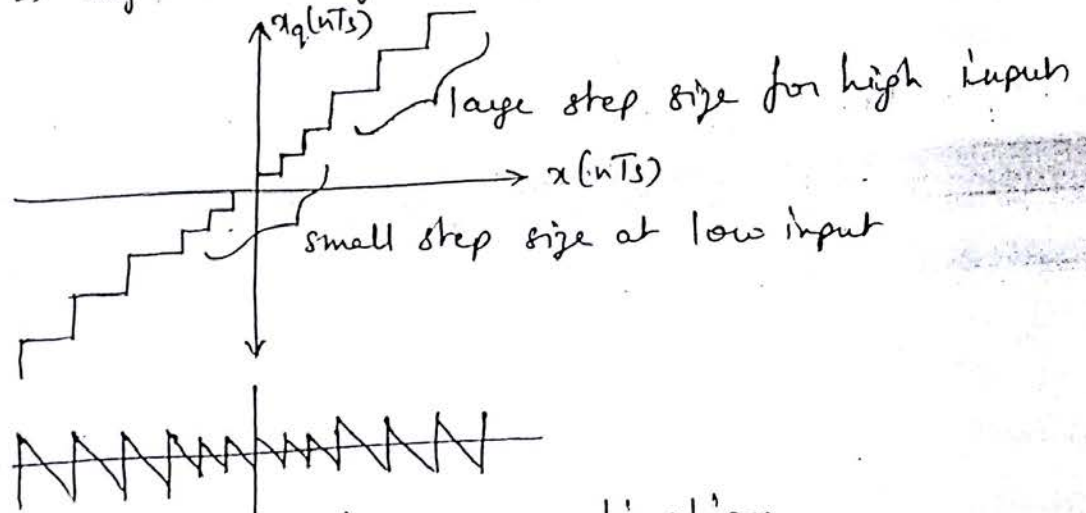 x_q(nTs)
large step size for high inputs
x(nTs)
small step size at low input